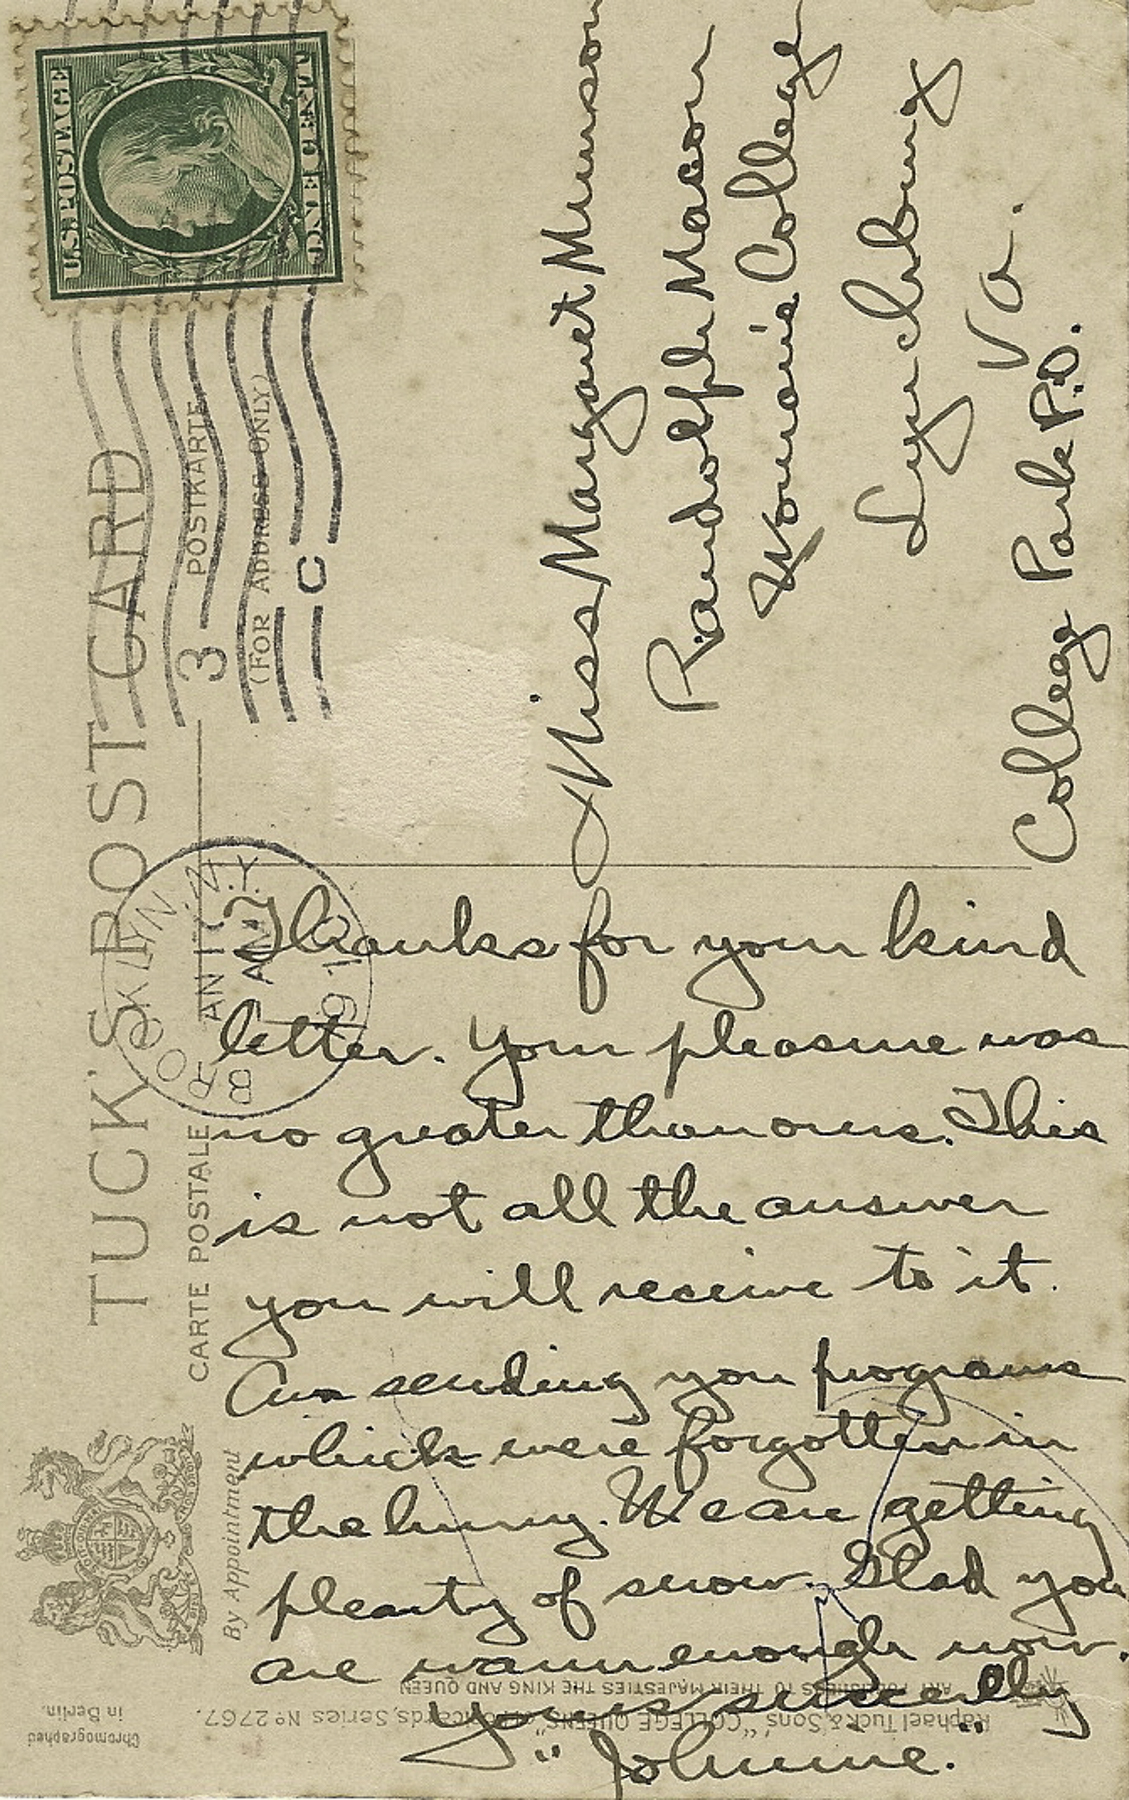 U.S. POSTAGE
ONE CENT
TUCK'S POST CARD
CARTE POSTALE
POSTKARTE
(FOR ADDRESS ONLY)
3
C
BROOKLYN N.Y.
By Appointment
Miss Margaret Munson
Randolph Macon
Woman's College
Lynchburg
Va.
College Park P.O.
Thanks for your kind
letter. Your pleasure was
no greater than ours. This
is not all the answer
you will receive to it.
Am sending you programs
which were forgotten in
the hurry. We are getting
plenty of snow. Glad you
are warm enough now.
Yours sincerely
"Johnnie."
Raphael Tuck & Sons' "COLLEGE QUEENS" Postcards, Series No 2767.
ART PUBLISHERS TO THEIR MAJESTIES THE KING AND QUEEN
Chromographed
in Berlin.